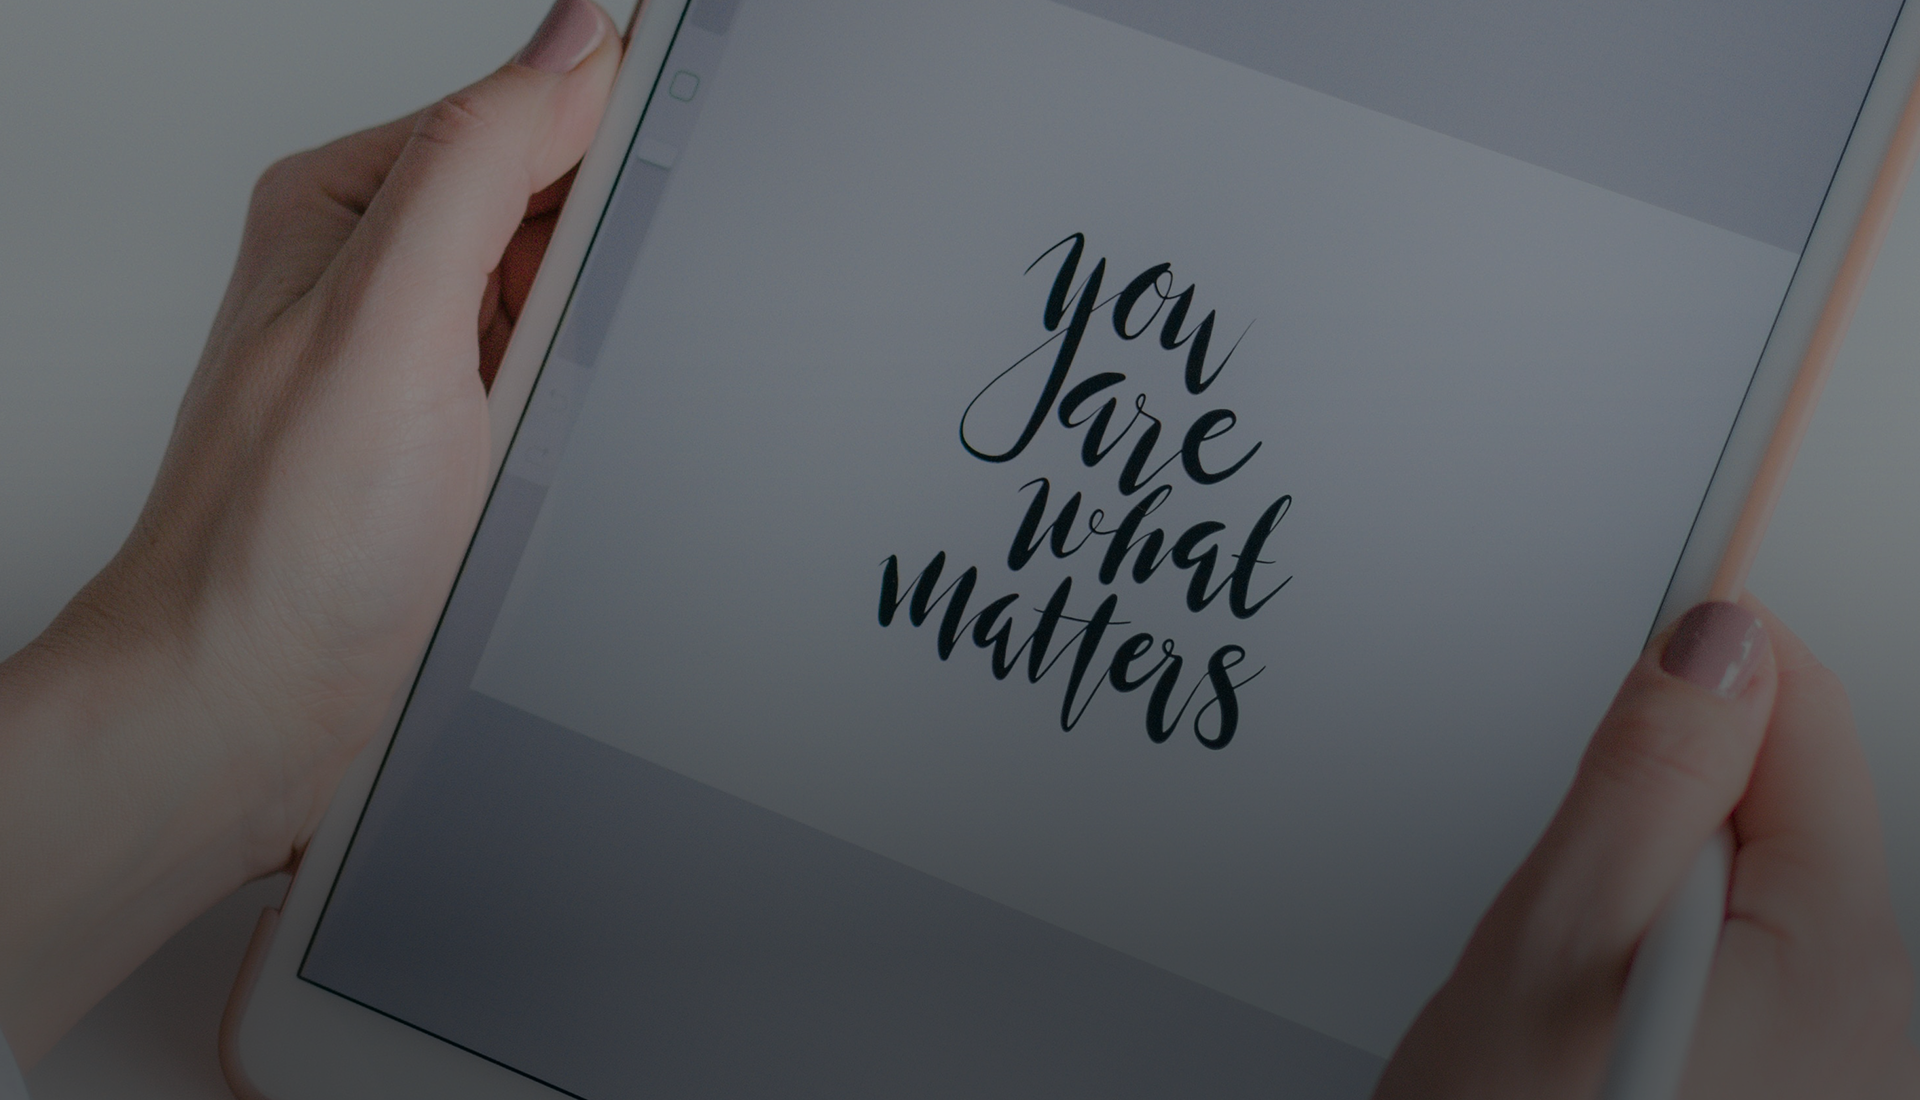 you
are
what
matters